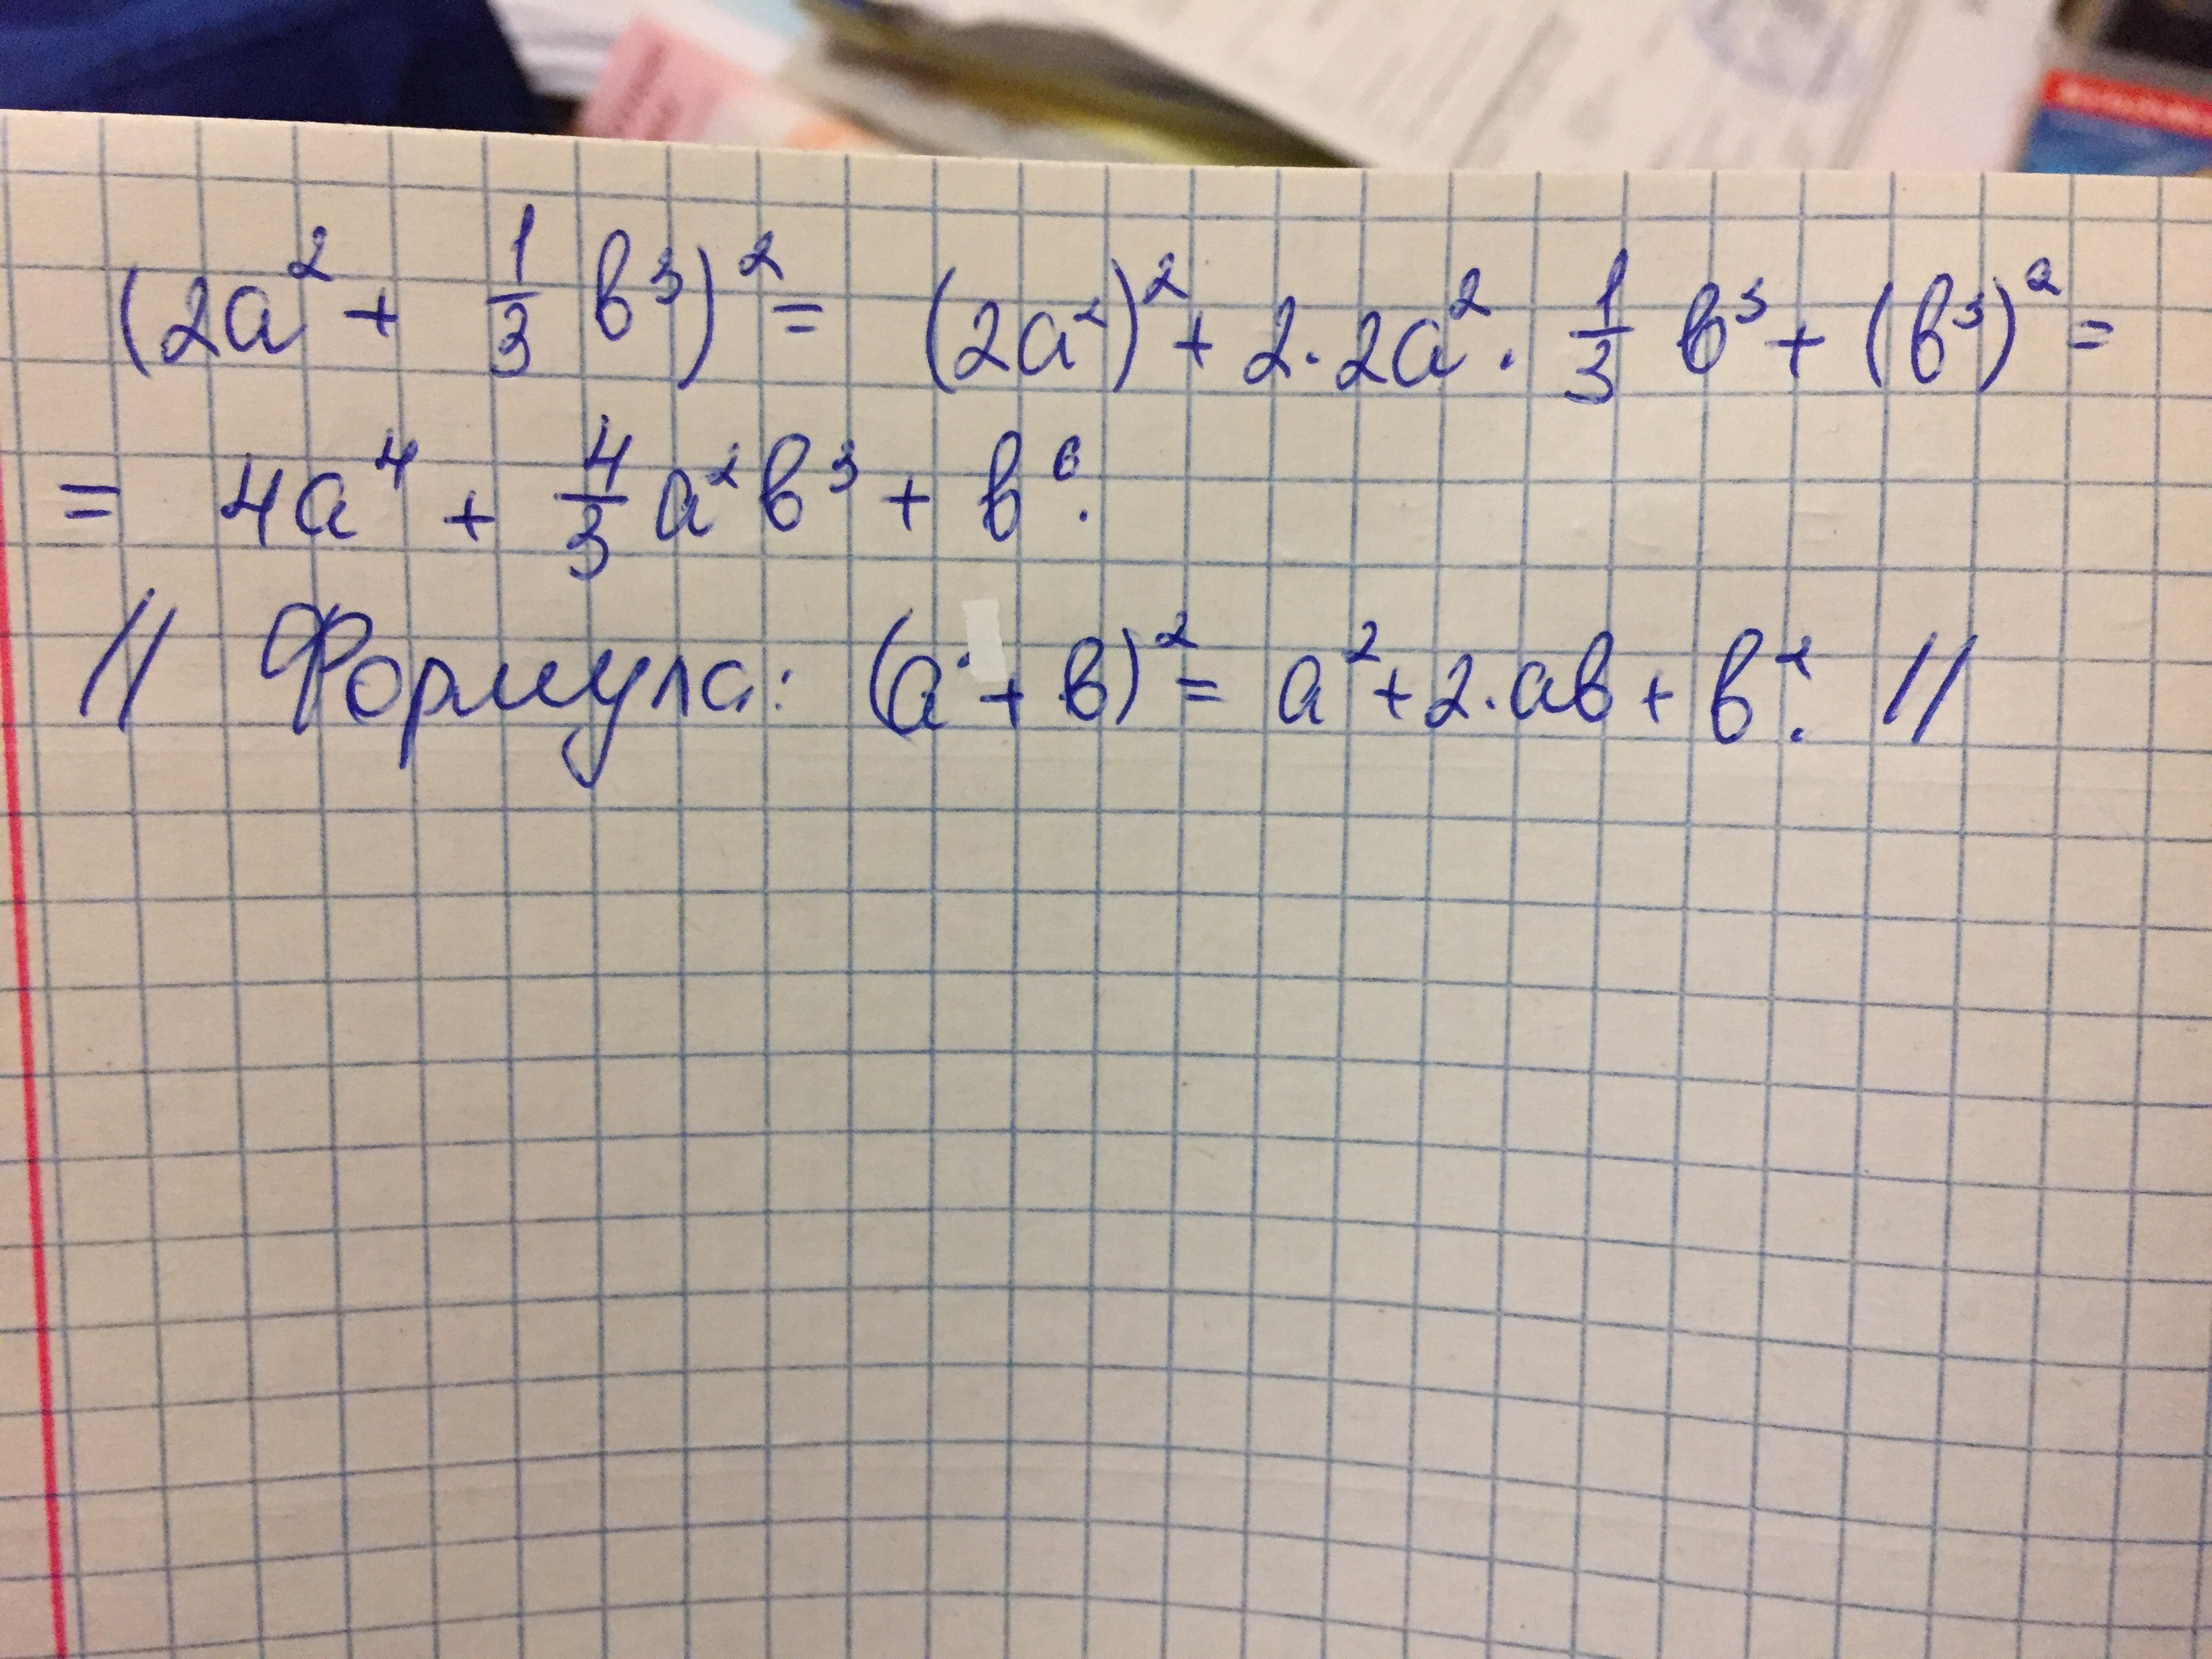 (2a² + 1/3 b³)² = (2a²)² + 2·2a² · 1/3 b³ + (b³)² =
= 4a⁴ + 4/3 a²b³ + b⁶.
// Формула: (a + b)² = a² + 2·ab + b². //